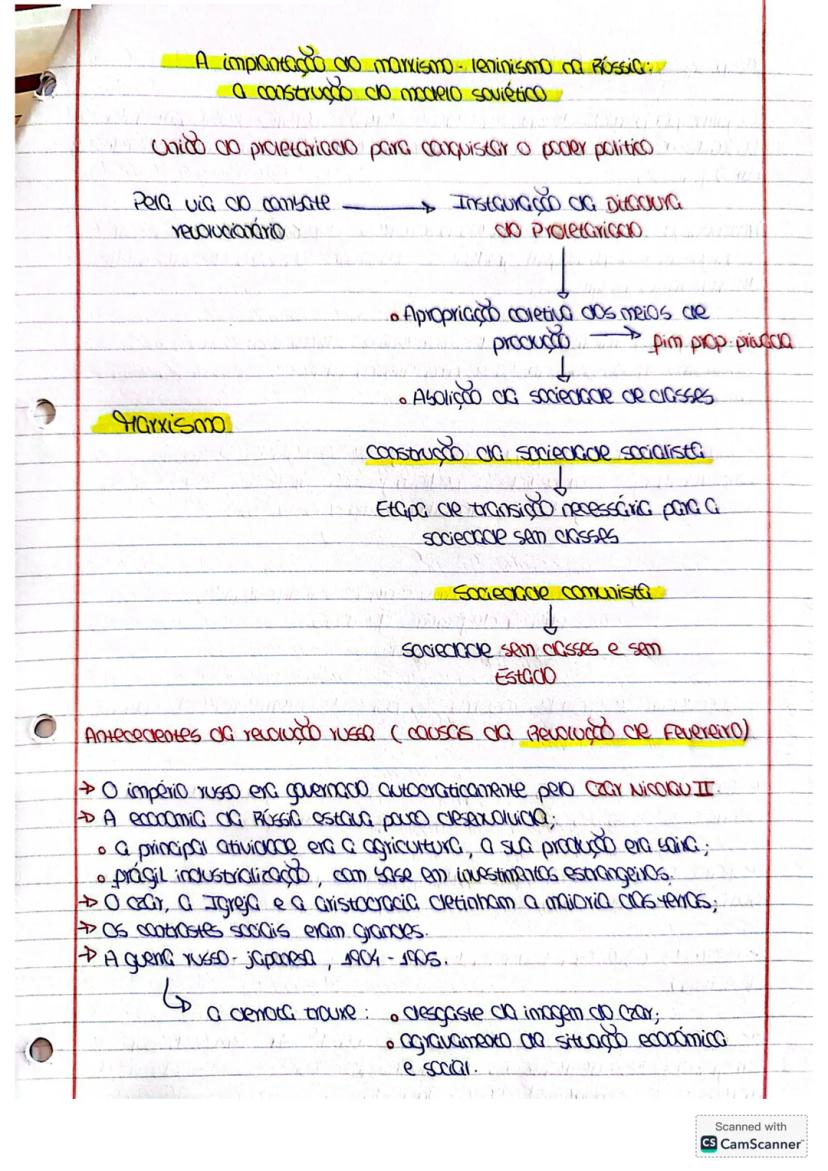 A implantação do marxismo-leninismo na Rússia:
a construção do modelo soviético
União do proletariado para conquistar o poder político
Pela via do combate revolucionário → Instauração da Ditadura
do Proletariado
• Apropriação coletiva dos meios de
produção → fim prop. privada
• Abolição da sociedade de classes
Marxismo
construção da sociedade socialista
Etapa de transição necessária para a
sociedade sem classes
Sociedade comunista
sociedade sem classes e sem
Estado
Antecedentes da revolução russa (causas da Revolução de Fevereiro)
→ O império russo era governado autocraticamente pelo Czar Nicolau II.
→ A economia da Rússia estava pouco desenvolvida;
• a principal atividade era a agricultura, a sua produção era baixa;
• frágil industrialização, com base em investimentos estrangeiros.
→ O czar, a Igreja e a aristocracia detinham a maioria das terras;
→ Os contrastes sociais eram grandes.
→ A guerra russo-japonesa, 1904-1905.
a derrota trouxe: • desgaste da imagem do czar;
• agravamento da situação económica
e social.
Scanned with
CS CamScanner